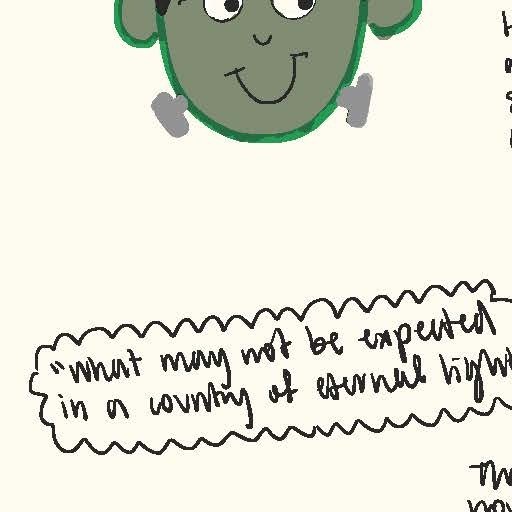 "what may not be expected
in a country of eternal light